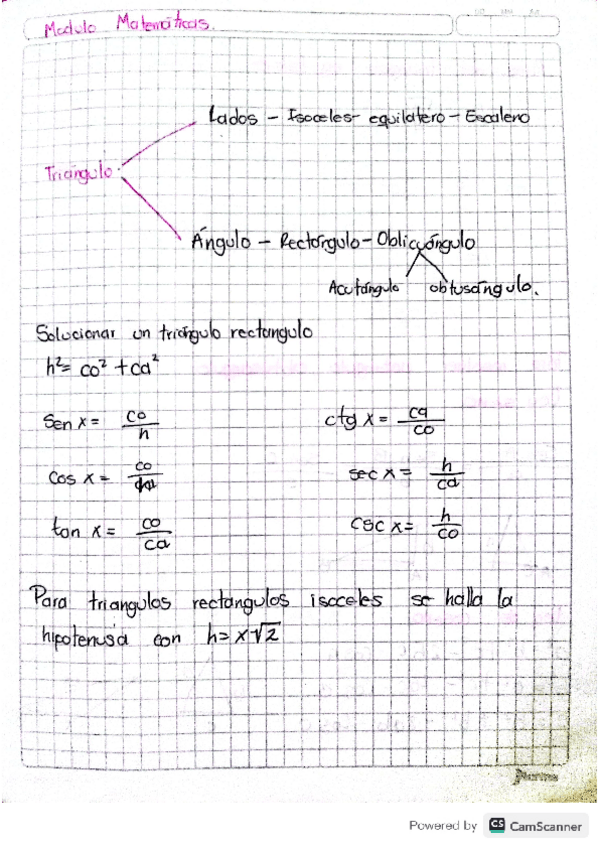 Modulo Matemáticas.
Lados - Isoceles - equilatero - Escaleno
Triángulo
Ángulo - Rectángulo - Oblicuángulo
Acutángulo obtusángulo.
Solucionar un triángulo rectangulo
h² = co² + ca²
Sen x = co/h ctg x = ca/co
Cos x = co/ sec x = h/ca
tan x = co/ca csc x = h/co
Para triangulos rectangulos isoceles se halla la
hipotenusa con h = x√2
Powered by CS CamScanner